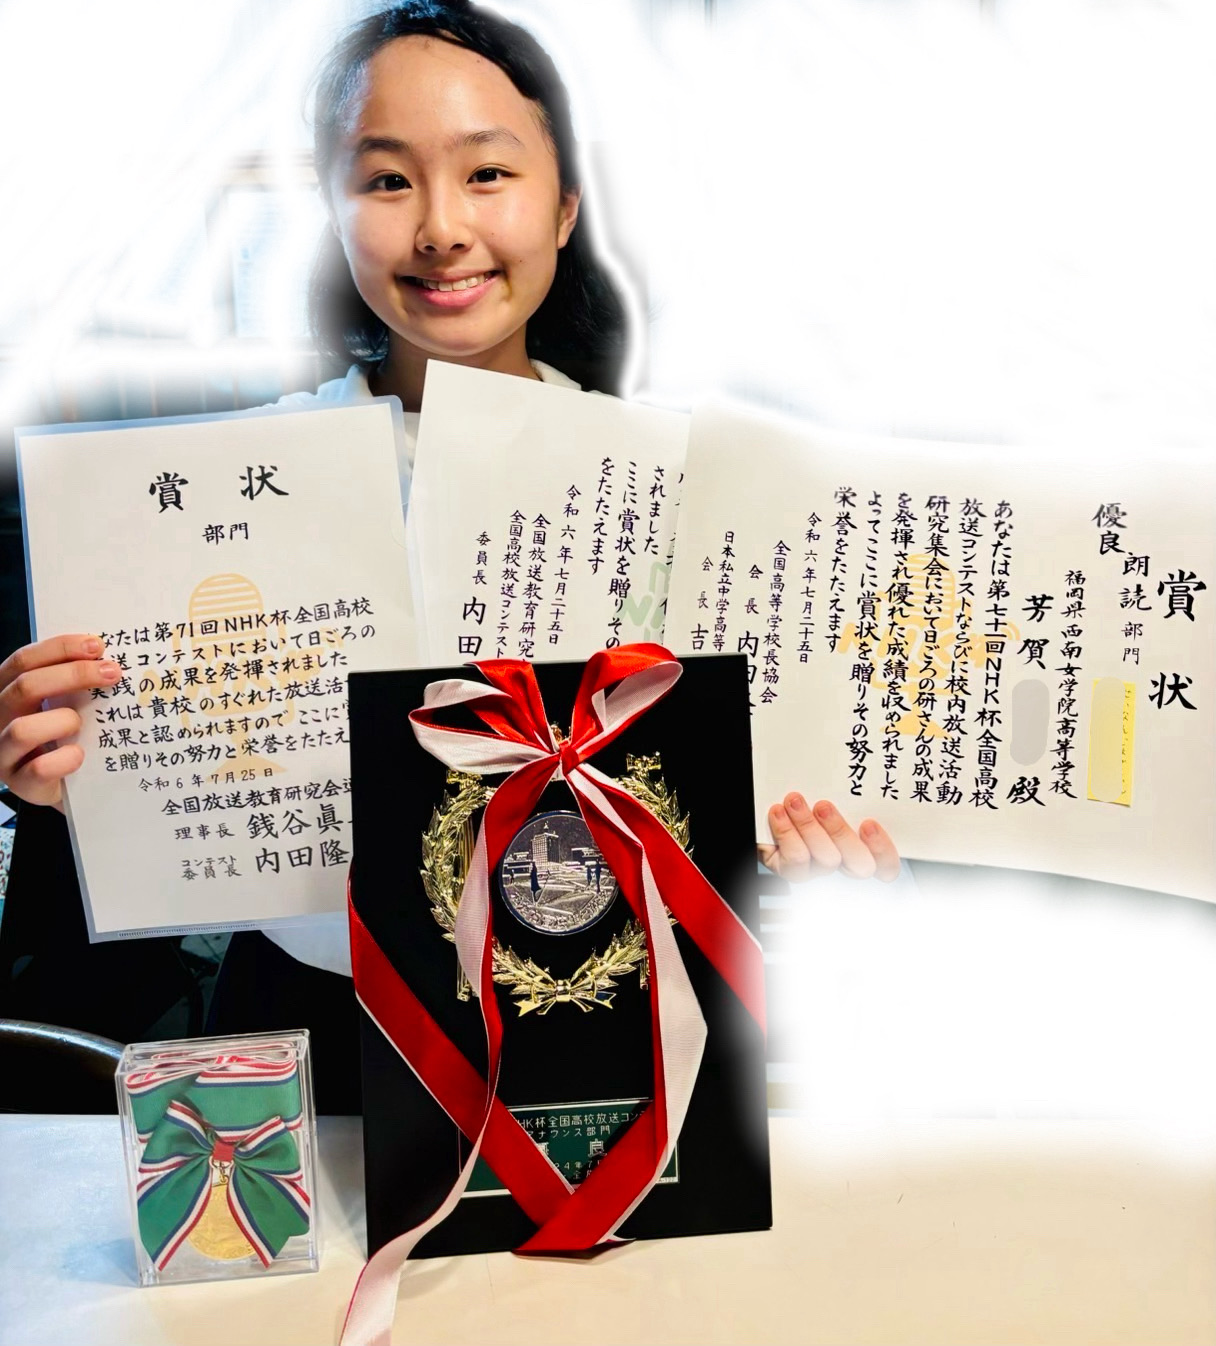 賞状
部門
なたは第71回NHK杯全国高校
送コンテストにおいて日ごろの
実践の成果を発揮されました
これは貴校のすぐれた放送活
成果と認められますので ここに
を贈りその努力と栄誉をたたえ
令和6年7月25日
全国放送教育研究会
理事長 銭谷眞
コンテスト
委員長 内田隆
されました
ここに賞状を贈りその
をたたえます
令和六年七月二十五日
全国放送教育研究
全国高校放送コンテスト
委員長 内田
賞状
優良 朗読部門
福岡県西南女学院高等学校
芳賀 殿
あなたは第七十一回NHK杯全国高校
放送コンテストならびに校内放送活動
研究集会において日ごろの研さんの成果
を発揮され優れた成績を収められました
よってここに賞状を贈りその努力と
栄誉をたたえます
令和六年七月二十五日
全国高等学校長協会
会長 内田
日本私立中学高等
会長 吉
HK杯全国高校放送コン
アナウンス部門
良